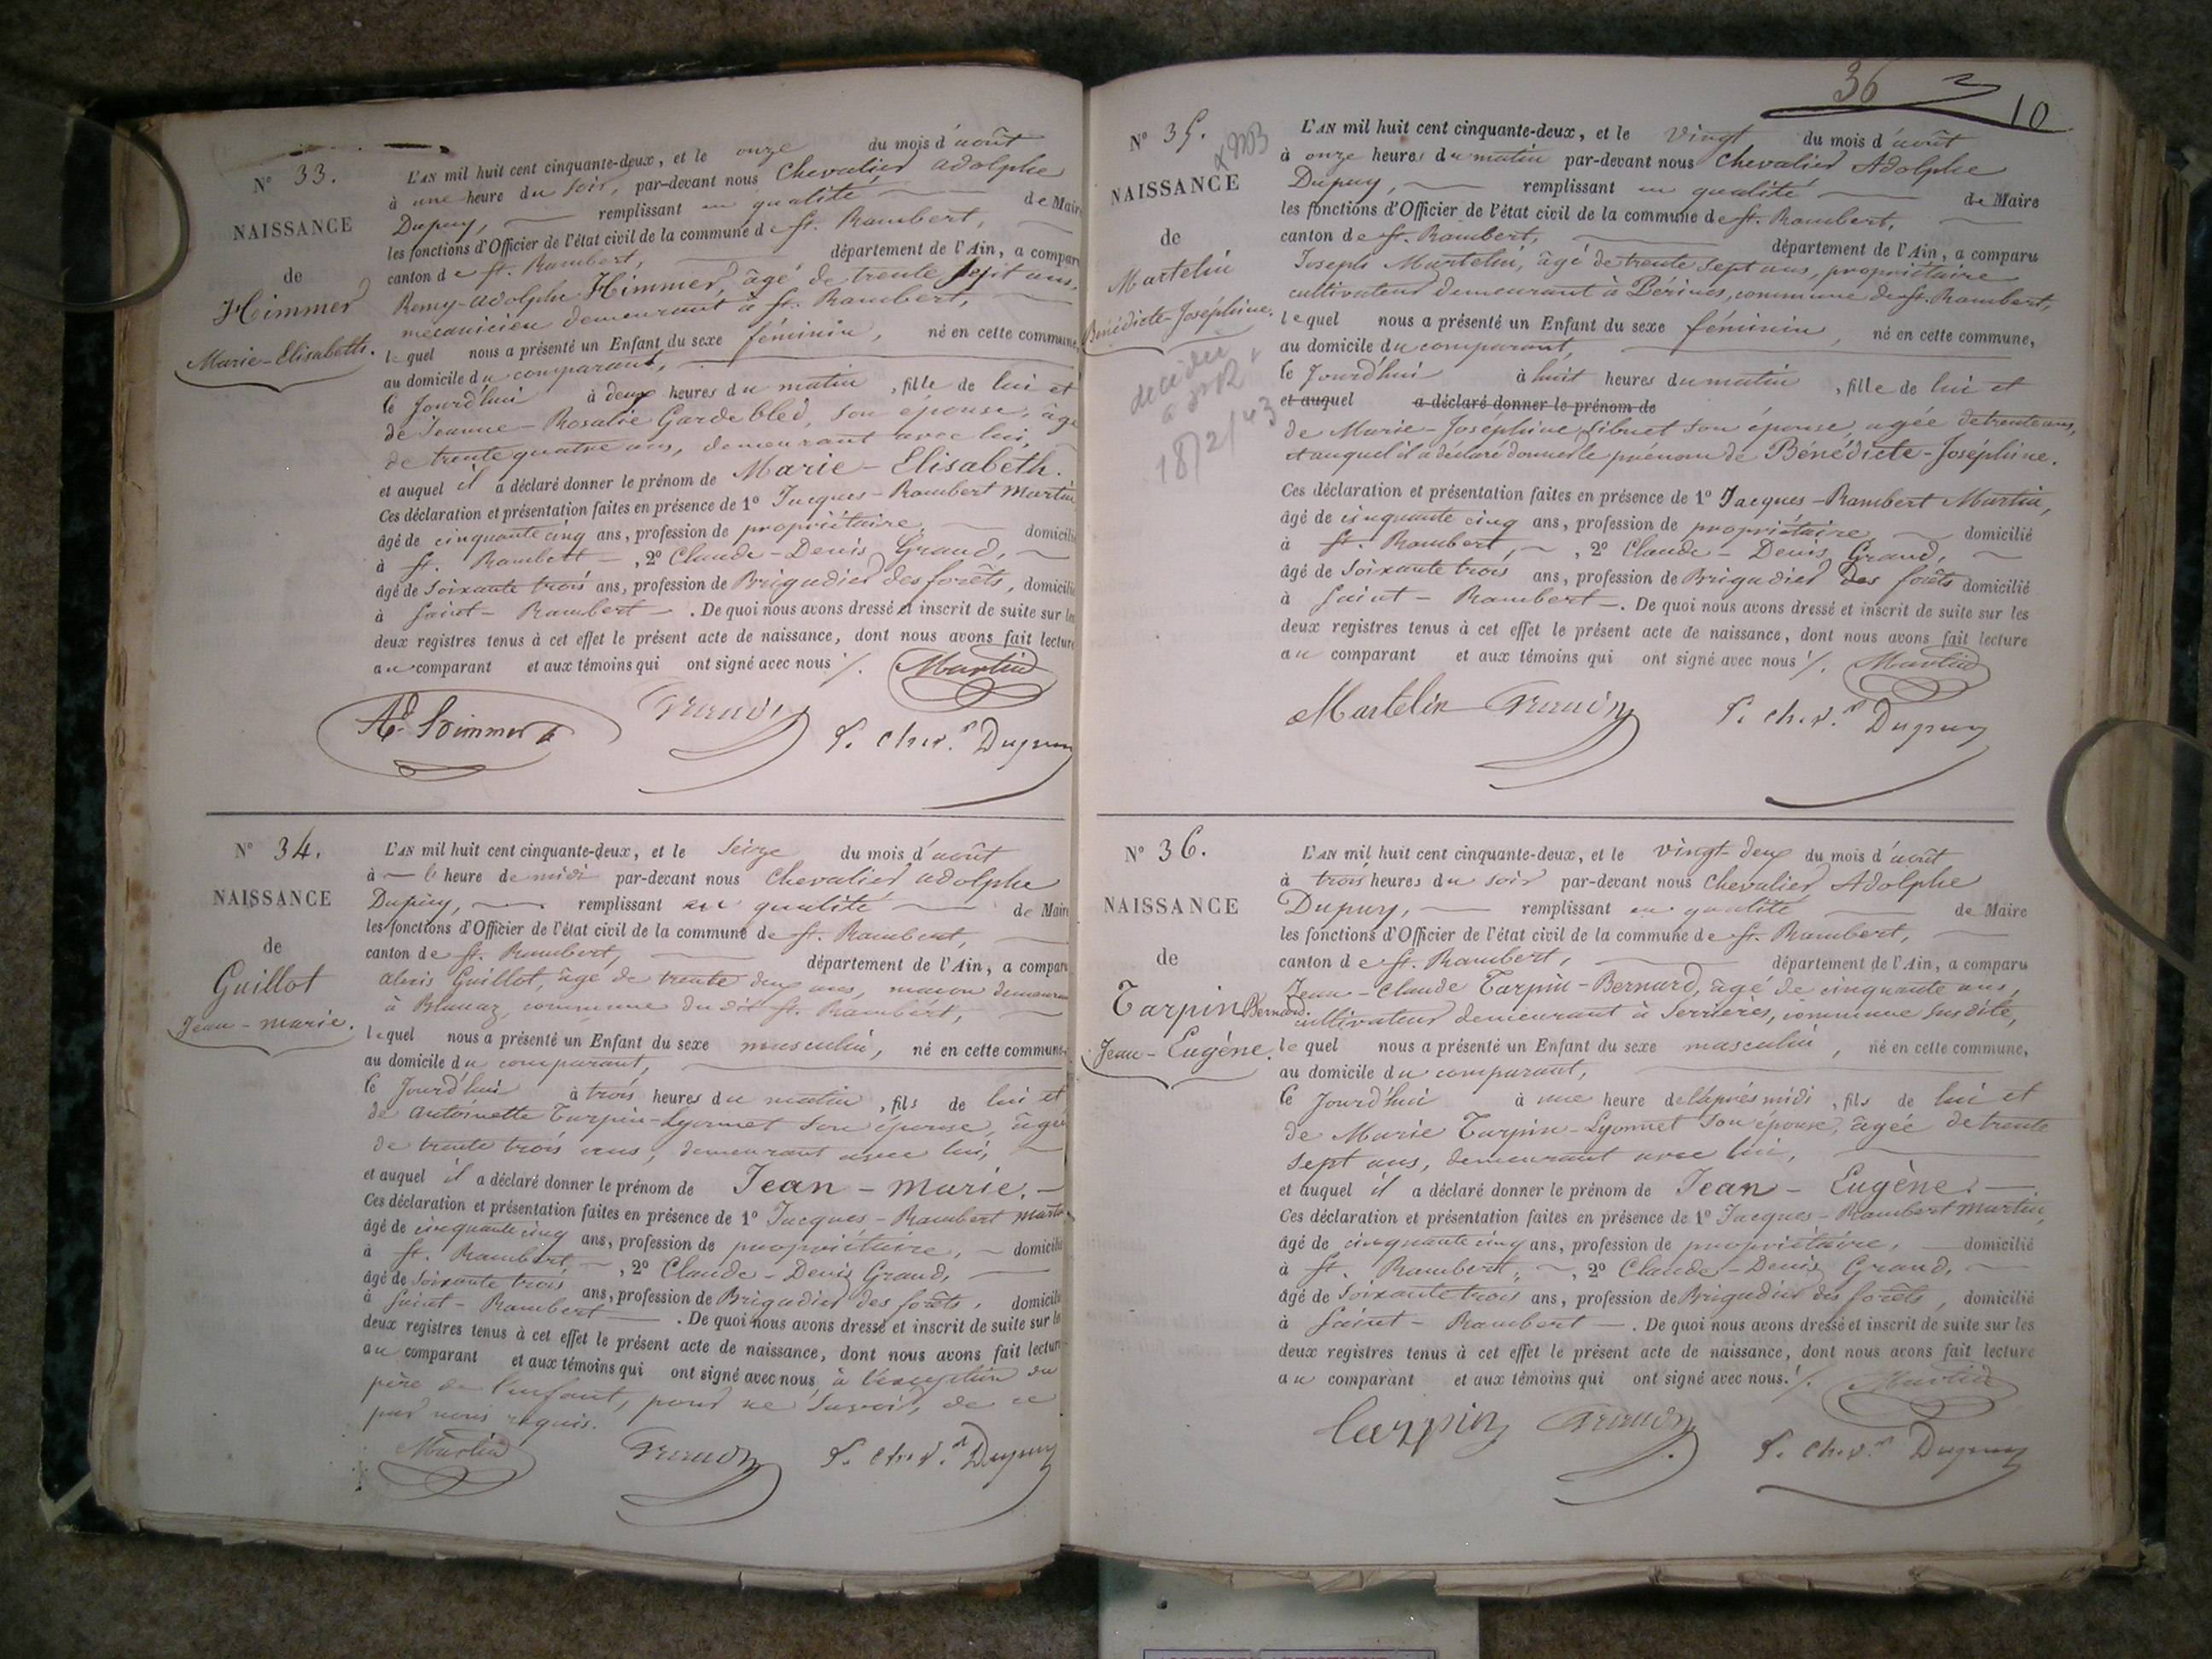 N° 33.
NAISSANCE
de
Himmer
Marie-Elisabeth.
L'AN mil huit cent cinquante-deux, et le onze du mois d'août
à une heure du soir, par-devant nous Chevalier Adolphe
Dupuy, remplissant en qualité de Maire
les fonctions d'Officier de l'état civil de la commune de St. Rambert,
canton de St. Rambert, département de l'Ain, a comparu
Remy-Adolphe Himmer, âgé de trente sept ans,
mécanicien demeurant à St. Rambert,
lequel nous a présenté un Enfant du sexe féminin, né en cette commune,
au domicile du comparant,
ce Jourd'hui à deux heures du matin, fille de lui et
de Jeanne-Rosalie Gardebled, son épouse, âgée
de trente quatre ans, demeurant avec lui,
et auquel il a déclaré donner le prénom de Marie-Elisabeth.
Ces déclaration et présentation faites en présence de 1° Jacques-Rambert Martin
âgé de cinquante cinq ans, profession de propriétaire, domicilié
à St. Rambert, 2° Claude-Denis Grand,
âgé de Soixante trois ans, profession de Brigadier des forêts, domicilié
à Saint-Rambert. De quoi nous avons dressé et inscrit de suite sur les
deux registres tenus à cet effet le présent acte de naissance, dont nous avons fait lecture
au comparant et aux témoins qui ont signé avec nous ./.
Martin
Ad. Himmer Grand P. Chev.er Dupuy
N° 34.
NAISSANCE
de
Guillot
Jean-marie.
L'AN mil huit cent cinquante-deux, et le Seize du mois d'août
à l'heure de midi par-devant nous Chevalier Adolphe
Dupuy, remplissant en qualité de Maire
les fonctions d'Officier de l'état civil de la commune de St. Rambert,
canton de St. Rambert, département de l'Ain, a comparu
Alexis Guillot, âgé de trente deux ans, maçon demeurant
à Blanaz, commune du dit St. Rambert,
lequel nous a présenté un Enfant du sexe masculin, né en cette commune,
au domicile du comparant,
ce Jourd'hui à trois heures du matin, fils de lui et
de Antoinette Turpin-Lyonnet son épouse, âgée
de trente trois ans, demeurant avec lui,
et auquel il a déclaré donner le prénom de Jean-marie.
Ces déclaration et présentation faites en présence de 1° Jacques-Rambert Martin
âgé de cinquante cinq ans, profession de propriétaire, domicilié
à St. Rambert, 2° Claude-Denis Grand,
âgé de Soixante trois ans, profession de Brigadier des forêts, domicilié
à Saint-Rambert. De quoi nous avons dressé et inscrit de suite sur les
deux registres tenus à cet effet le présent acte de naissance, dont nous avons fait lecture
au comparant et aux témoins qui ont signé avec nous, à l'exception du
père de l'enfant, pour ne savoir, de ce
par nous requis.
Martin Grand P. Chev.er Dupuy
36
10
N° 35.
NAISSANCE
de
Martelin
Bénédicte-Joséphine.
décédée
18/2/43
L'AN mil huit cent cinquante-deux, et le vingt du mois d'août
à onze heures du matin par-devant nous Chevalier Adolphe
Dupuy, remplissant en qualité de Maire
les fonctions d'Officier de l'état civil de la commune de St. Rambert,
canton de St. Rambert, département de l'Ain, a comparu
Joseph Martelin, âgé de trente sept ans, propriétaire
cultivateur demeurant à Bérines, commune de St. Rambert,
lequel nous a présenté un Enfant du sexe féminin, né en cette commune,
au domicile du comparant,
ce Jourd'hui à huit heures du matin, fille de lui et
et auquel a déclaré donner le prénom de
de Marie-Joséphine Sibuet son épouse, agée de trente ans,
et auquel il a déclaré donner le prénom de Bénédicte-Joséphine.
Ces déclaration et présentation faites en présence de 1° Jacques-Rambert Martin,
âgé de cinquante cinq ans, profession de propriétaire, domicilié
à St. Rambert, 2° Claude-Denis Grand,
âgé de Soixante trois ans, profession de Brigadier des forêts domicilié
à Saint-Rambert. De quoi nous avons dressé et inscrit de suite sur les
deux registres tenus à cet effet le présent acte de naissance, dont nous avons fait lecture
au comparant et aux témoins qui ont signé avec nous ./.
Martin
Martelin Grand P. Chev.er Dupuy
N° 36.
NAISSANCE
de
Tarpin Bernard.
Jean-Eugène.
L'AN mil huit cent cinquante-deux, et le vingt-deux du mois d'août
à trois heures du soir par-devant nous Chevalier Adolphe
Dupuy, remplissant en qualité de Maire
les fonctions d'Officier de l'état civil de la commune de St. Rambert,
canton de St. Rambert, département de l'Ain, a comparu
Jean-Claude Tarpin-Bernard, âgé de cinquante ans,
cultivateur demeurant à Serrières, commune susdite,
lequel nous a présenté un Enfant du sexe masculin, né en cette commune,
au domicile du comparant,
ce Jourd'hui à une heure de l'après midi, fils de lui et
de Marie Tarpin-Lyonnet son épouse, âgée de trente
sept ans, demeurant avec lui,
et auquel il a déclaré donner le prénom de Jean-Eugène.
Ces déclaration et présentation faites en présence de 1° Jacques-Rambert Martin,
âgé de cinquante cinq ans, profession de propriétaire, domicilié
à St. Rambert, 2° Claude-Denis Grand,
âgé de Soixante trois ans, profession de Brigadier des forêts, domicilié
à Saint-Rambert. De quoi nous avons dressé et inscrit de suite sur les
deux registres tenus à cet effet le présent acte de naissance, dont nous avons fait lecture
au comparant et aux témoins qui ont signé avec nous. ./.
Martin
Tarpin Grand P. Chev.er Dupuy